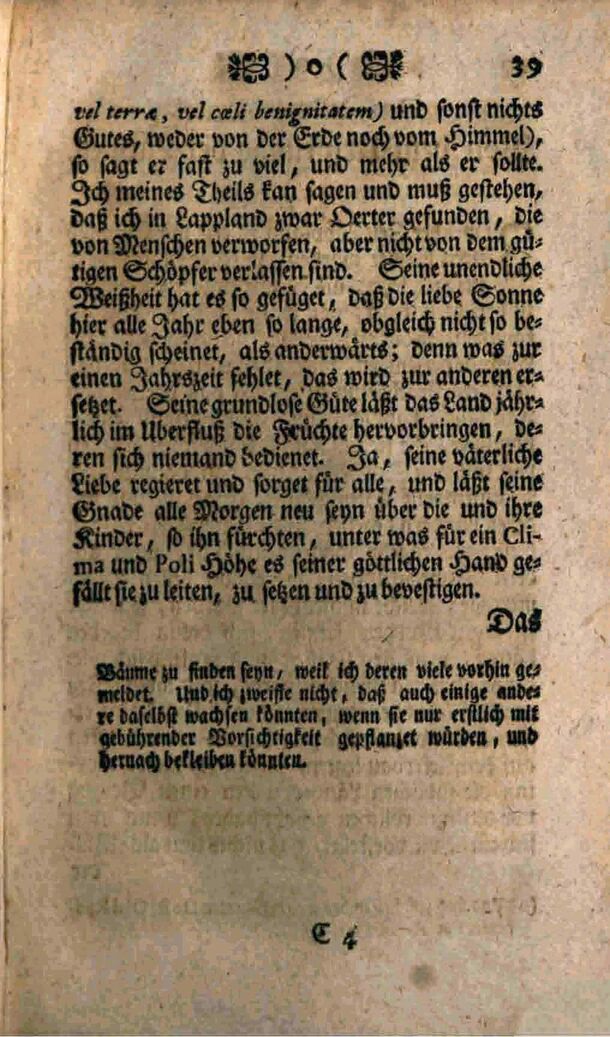 ) o ( 39
vel terræ, vel cœli benignitatem) und sonst nichts
Gutes, weder von der Erde noch vom Himmel),
so sagt er fast zu viel, und mehr als er sollte.
Ich meines Theils kan sagen und muß gestehen,
daß ich in Lappland zwar Oerter gefunden, die
von Menschen verworfen, aber nicht von dem gü-
tigen Schöpfer verlassen sind. Seine unendliche
Weißheit hat es so gefüget, daß die liebe Sonne
hier alle Jahr eben so lange, obgleich nicht so be-
ständig scheinet, als anderwärts; denn was zur
einen Jahrszeit fehlet, das wird zur anderen er-
setzet. Seine grundlose Güte läßt das Land jähr-
lich im Uberfluß die Früchte hervorbringen, de-
ren sich niemand bedienet. Ja, seine väterliche
Liebe regieret und sorget für alle, und läßt seine
Gnade alle Morgen neu seyn über die und ihre
Kinder, so ihn fürchten, unter was für ein Cli-
ma und Poli Höhe es seiner göttlichen Hand ge-
fällt sie zu leiten, zu setzen und zu bevestigen.
Das
Bäume zu finden seyn, weil ich deren viele vorhin ge-
meldet. Und ich zweifle nicht, daß auch einige ande-
re daselbst wachsen könnten, wenn sie nur erstlich mit
gebührender Vorsichtigkeit gepflanzet würden, und
hernach bekleiben könnten.
C 4